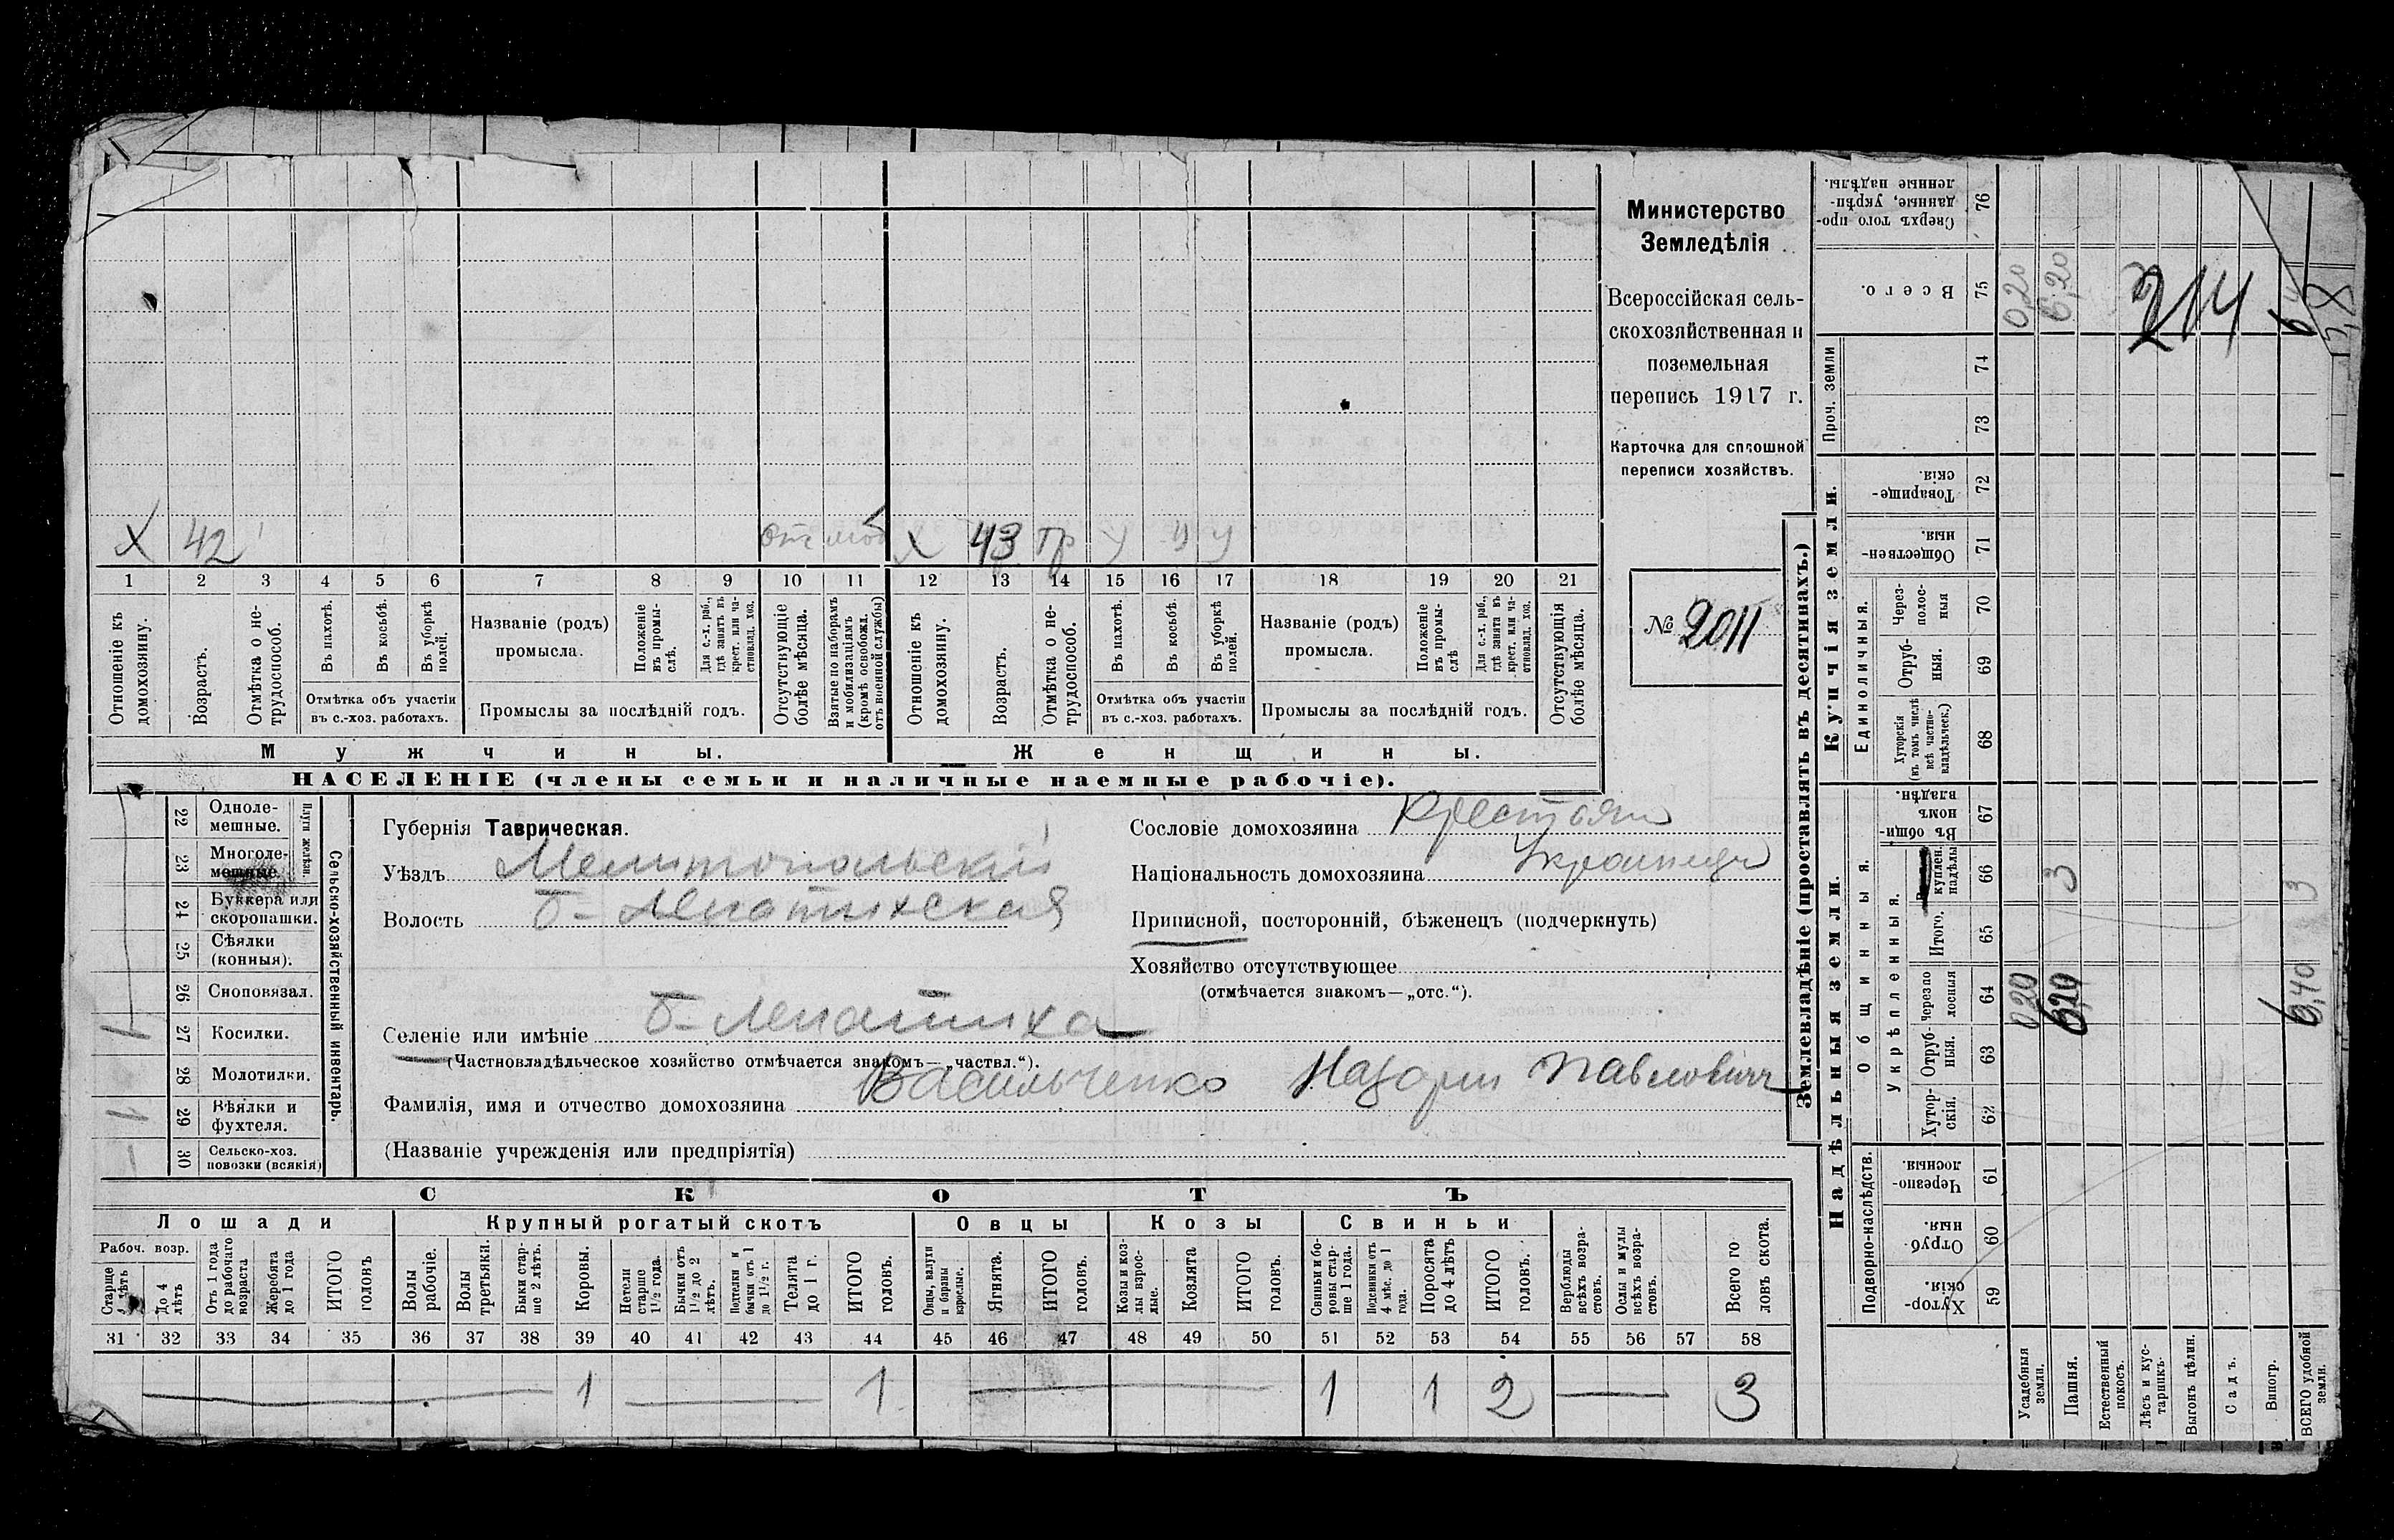 Министерство
Земледѣлія
Всероссійская сель-
скохозяйственная и
поземельная
перепись 1917 г.
Карточка для сплошной
переписи хозяйствъ.
№ 2011
X 42 отс моб X 43 тр у у у
1 2 3 4 5 6 7 8 9 10 11 12 13 14 15 16 17 18 19 20 21
Отношеніе къ домохозяину.
Возрастъ.
Отмѣтка о не-трудоспособ.
Въ пахотѣ.
Въ косьбѣ.
Въ уборкѣ полей.
Отмѣтка объ участіи
въ с.-хоз. работахъ.
Названіе (родъ)
промысла.
Положеніе въ промы-слѣ.
Для с.-х. раб., гдѣ занятъ въ крест. или ча-стновлад. хоз.
Промыслы за послѣдній годъ.
Отсутствующіе болѣе мѣсяца.
Взятые по наборамъ и мобилизаціямъ (кромѣ освобожд. отъ военной службы)
Отношеніе къ домохозяину.
Возрастъ.
Отмѣтка о не-трудоспособ.
Въ пахотѣ.
Въ косьбѣ.
Въ уборкѣ полей.
Отмѣтка объ участіи
въ с.-хоз. работахъ.
Названіе (родъ)
промысла.
Положеніе въ промы-слѣ
Для с.-х. раб., гдѣ занята въ крест. или ча-стновлад. хоз.
Промыслы за послѣдній годъ.
Отсутствующія болѣе мѣсяца.
Мужчины.
Женщины.
НАСЕЛЕНІЕ (члены семьи и наличные наемные рабочіе).
22 Одноле-мешные.
23 Многоле-мешные.
Плуги желѣзн.
24 Буккера или скоропашки.
25 Сѣялки (конныя).
26 Сноповязал.
27 Косилки. 1
28 Молотилки.
29 Вѣялки и фухтеля. 1
30 Сельско-хоз. повозки (всякія)
Сельско-хозяйственный инвентарь.
Губернія Таврическая.
Уѣздъ Мелитопольскій
Волость Б-Лепатихская
Селеніе или имѣніе Б-Лепатиха
(Частновладѣльческое хозяйство отмѣчается знакомъ—„частвл.“).
Фамилія, имя и отчество домохозяина Васильченко Назарии Павлович
(Названіе учрежденія или предпріятія)
Сословіе домохозяина крестьян
Національность домохозяина Украинец
Приписной, посторонній, бѣженецъ (подчеркнуть)
Хозяйство отсутствующее
(отмѣчается знакомъ—„отс.“).
СКОТЪ
Лошади
Крупный рогатый скотъ
Овцы
Козы
Свиньи
Рабоч. возр.
Старше 4 лѣтъ
До 4 лѣтъ
Отъ 1 года до рабочаго возраста
Жеребята до 1 года
ИТОГО головъ
Волы рабочіе.
Волы третьяки.
Быки стар-ше 2 лѣтъ.
Коровы.
Нетели старше 1½ года.
Бычки отъ 1½ до 2 лѣтъ.
Подтелки и бычки отъ 1 до 1½ г.
Телята до 1 г.
ИТОГО головъ.
Овцы, валухи и бараны взрослые.
Ягнята.
ИТОГО головъ.
Козы и коз-лы взрос-лые.
Козлята
ИТОГО головъ.
Свиньи и бо-ровы стар-ше 1 года.
Подсвинки отъ 4 мѣс. до 1 года.
Поросята до 4 лѣтъ
ИТОГО головъ.
Верблюды всѣхъ возра-стовъ.
Ослы и мулы всѣхъ возра-стовъ.
Всего го ловъ скота.
31 32 33 34 35 36 37 38 39 40 41 42 43 44 45 46 47 48 49 50 51 52 53 54 55 56 57 58
1 1 1 1 2 3
Землевладѣніе (проставлять въ десятинахъ.)
Надѣльныя земли.
Купчія земли.
Проч. земли
Подворно-наслѣдств.
Общинныя.
Укрѣпленныя.
Единоличныя.
Сверхъ того про-данные, укрѣп-ленные надѣлы. 76
Всего. 75 0,20 6,20
74
73
Товарище-скія. 72
Обществен-ныя. 71
Через-полос-ныя 70
Отруб-ныя. 69
Хуторскія (въ томъ числѣ всѣ частно-владѣльческ.) 68
Въ общи-номъ владѣн. 67
куплен. надѣлы 66 3 3
Итого. 65
Черезпо лосныя 64 0,20 6,20 6,40
Отруб-ныя. 63
Хутор-скія. 62
Черезпо-лосныя. 61
Отруб-ныя. 60
Хутор-скія. 59
Усадебныя земли.
Пашня.
Естественный покосъ.
Лѣсъ и кус-тарникъ.
Выгонъ цѣлин.
Садъ.
Виногр.
ВСЕГО удобной земли.